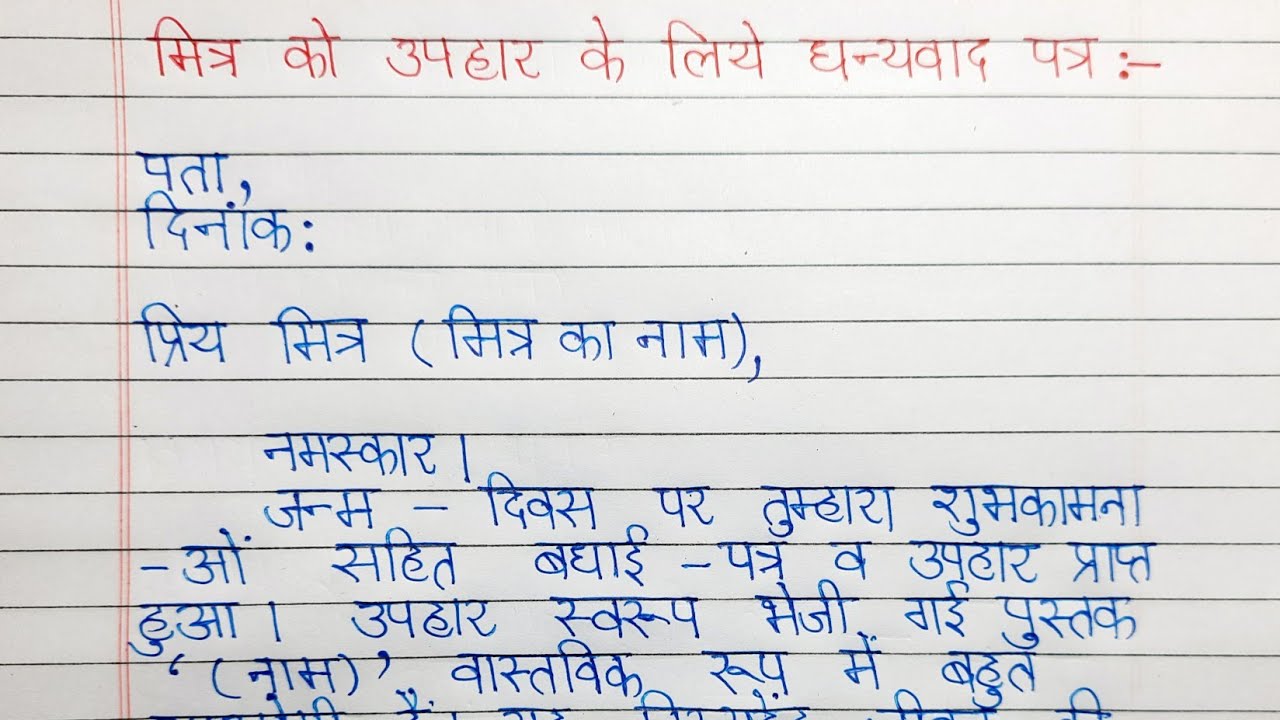 मित्र को उपहार के लिये धन्यवाद पत्र :-
पता,
दिनांक:
प्रिय मित्र (मित्र का नाम),
नमस्कार।
जन्म - दिवस पर तुम्हारा शुभकामना
-ओं सहित बधाई - पत्र व उपहार प्राप्त
हुआ। उपहार स्वरूप भेजी गई पुस्तक
‘(नाम)’ वास्तविक रूप में बहुत